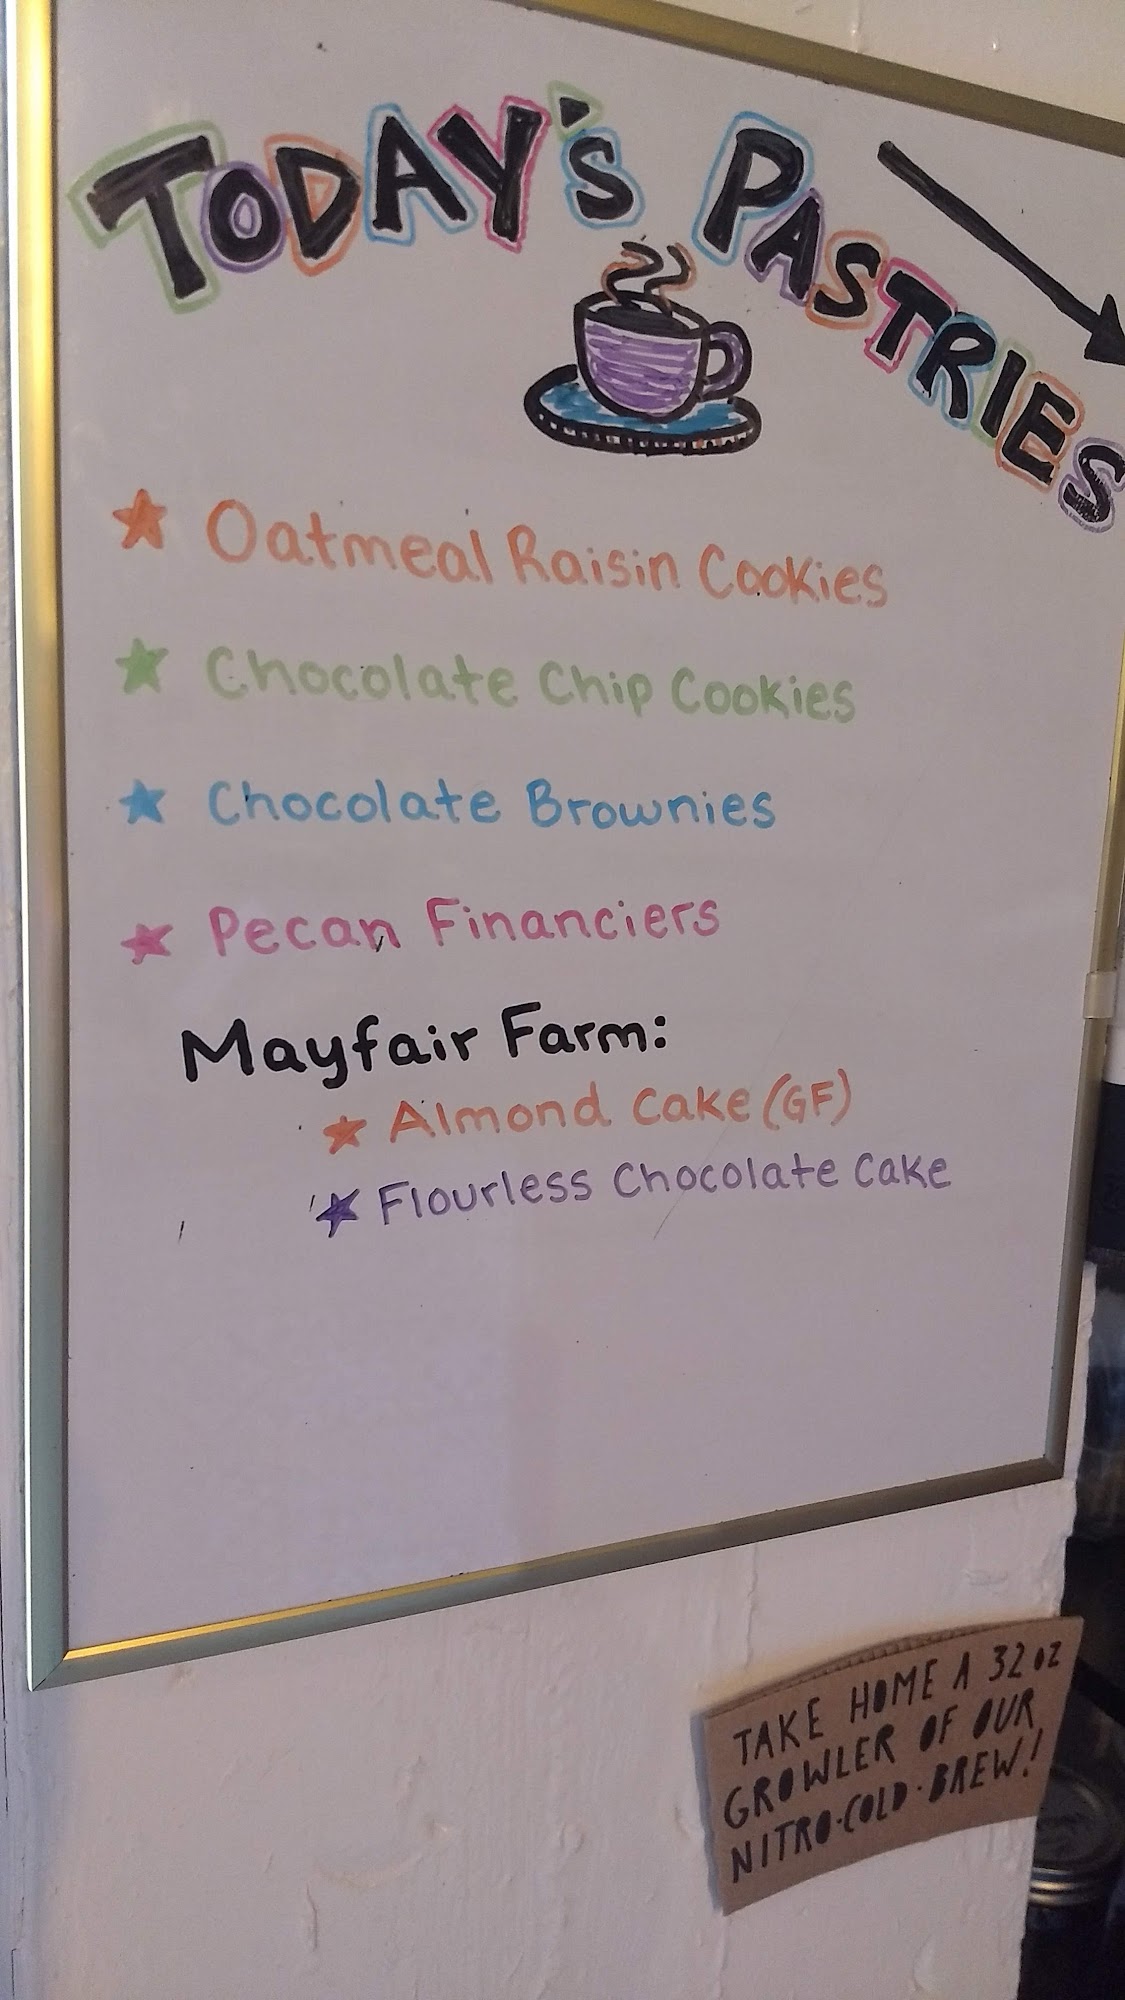 TODAY'S PASTRIES
Oatmeal Raisin Cookies
Chocolate Chip Cookies
Chocolate Brownies
Pecan Financiers
Mayfair Farm:
Almond Cake (GF)
Flourless Chocolate Cake
TAKE HOME A 32 oz
GROWLER OF OUR
NITRO·COLD·BREW!